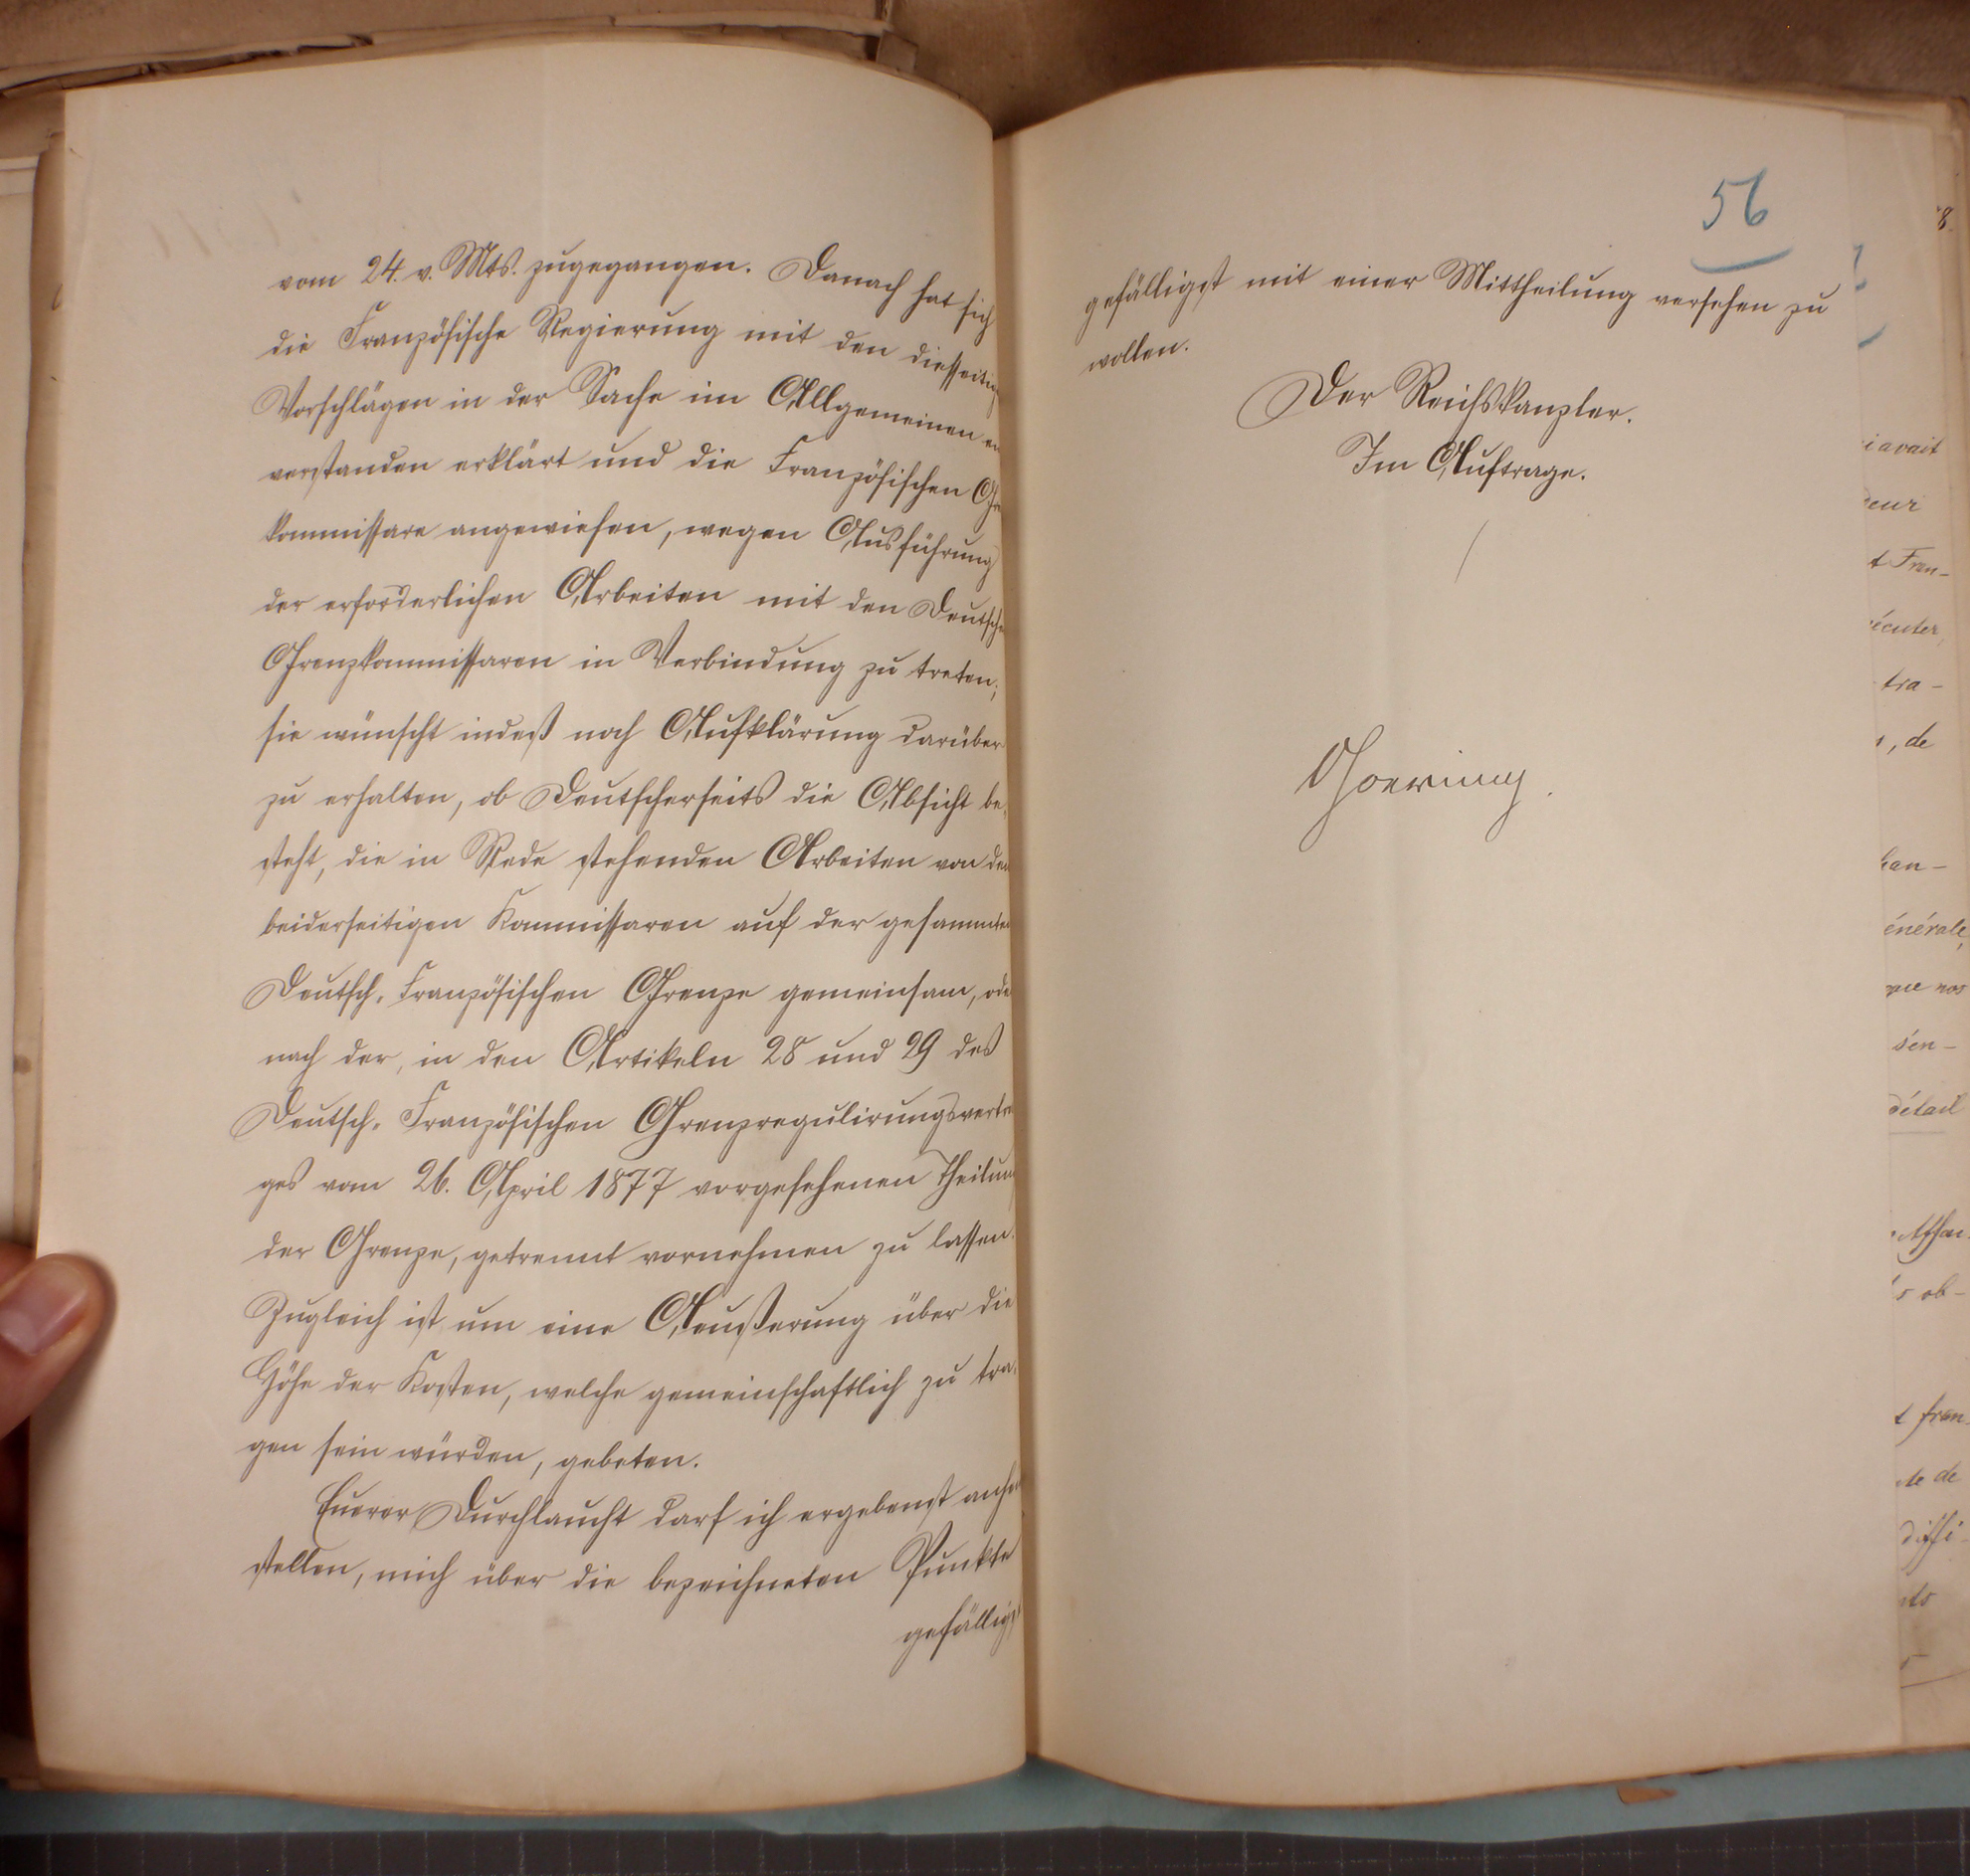 vom 24. v. Mts. zugegangen. Danach hat sich
die Französische Regierung mit den diesseitig
Vorschlägen in der Sache im Allgemeinen
verstanden erklärt und die Französischen
kommissare angewiesen, wegen Ausführung
der erforderlichen Arbeiten mit den Deutsche
Grenzkommissaren in Verbindung zu treten;
sie wünscht indeß noch Aufklärung darüber
zu erhalten, ob Deutscherseits die Absicht be-
steht, die in Rede stehenden Arbeiten von den
beiderseitigen Kommissaren auf der gesammten
Deutsch-Französischen Grenze gemeinsam, ode
nach der, in den Artikeln 28 und 29 des
Deutsch-Französischen Grenzregulirungsvertra
ges vom 26. April 1877 vorgesehenen Theilun
der Grenze, getrennt vornehmen zu lassen.
Zugleich ist um eine Aeußerung über die
Höhe der Kosten, welche gemeinschaftlich zu tra-
gen sein würden, gebeten.
Euerer Durchlaucht darf ich ergebenst anh
stellen, mich über die bezeichneten Punkte
gefällig
56
gefälligst mit einer Mittheilung versehen zu
wollen.
Der Reichskanzler.
Im Auftrage.
Goering.
8.
iavait
deur
t Fran-
écuter,
tra-
, de
han-
énérale,
que nos
sen-
détail
s ob-
t fran-
te de
diffi-